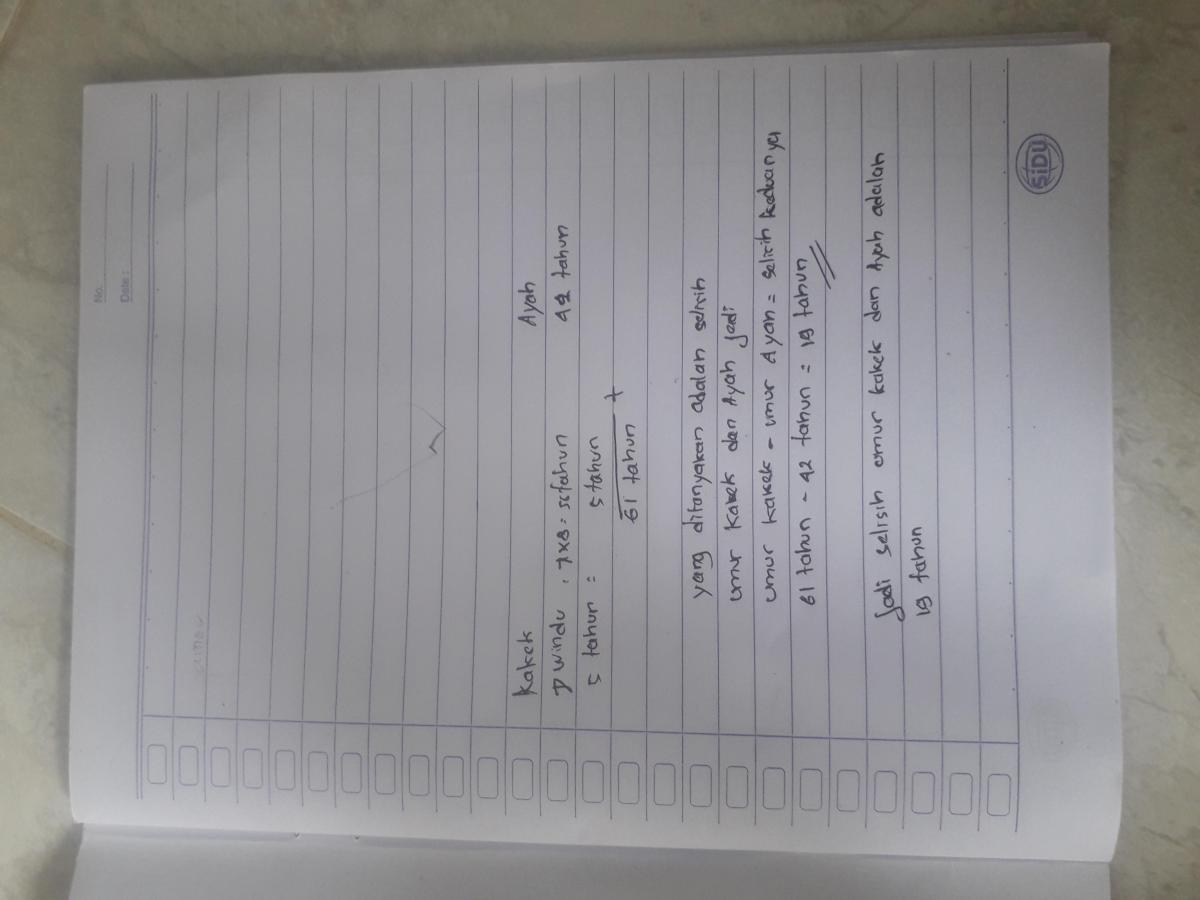 No.
Date:
Kakek Ayah
7 windu : 7x8 = 56 tahun 42 tahun
5 tahun = 5 tahun
+
61 tahun
yang ditanyakan adalah selisih
umur kakek dan Ayah Jadi
umur kakek - umur Ayah = selisih keduanya
61 tahun - 42 tahun = 19 tahun
Jadi selisih umur kakek dan Ayah adalah
19 tahun
SiDU